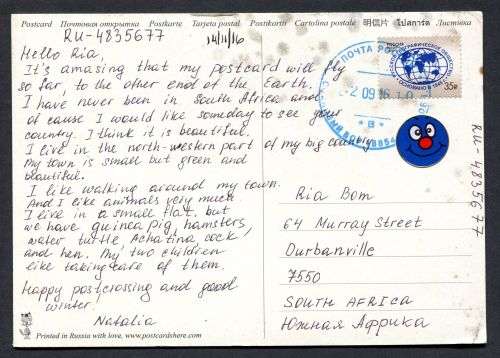 Postcard Почтовая открытка Postkarte Tarjeta postal Postikortti Cartolina postale 明信片 ไปสการ์ด Листивка
RU-4835677
14/11/16
Hello Ria,
It's amasing that my postcard will fly
so far, to the other end of the Earth.
I have never been in South Africa and
of cause I would like someday to see your
country. I think it is beautiful.
I live in the north-western part of my big country
My town is small but green and
beautiful.
I like walking around my town.
And I like animals very much
I live in a small flat. but
we have guinea pig, hamsters,
water turtle, Achatina cock
and hen. My two children
like taking care of them.
Happy postcrossing and good
winter!
Natalia
Printed in Russia with love, www.postcardshere.com
ПОЧТА РОССИИ
2 09 16 10
*В*
35р
RU-4835677
Ria Bom
64 Murray Street
Durbanville
7550
SOUTH AFRICA
Южная Африка